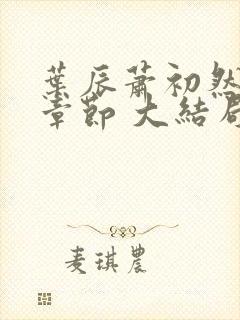 葉辰蕭初然
章節 大結局
麦琪農